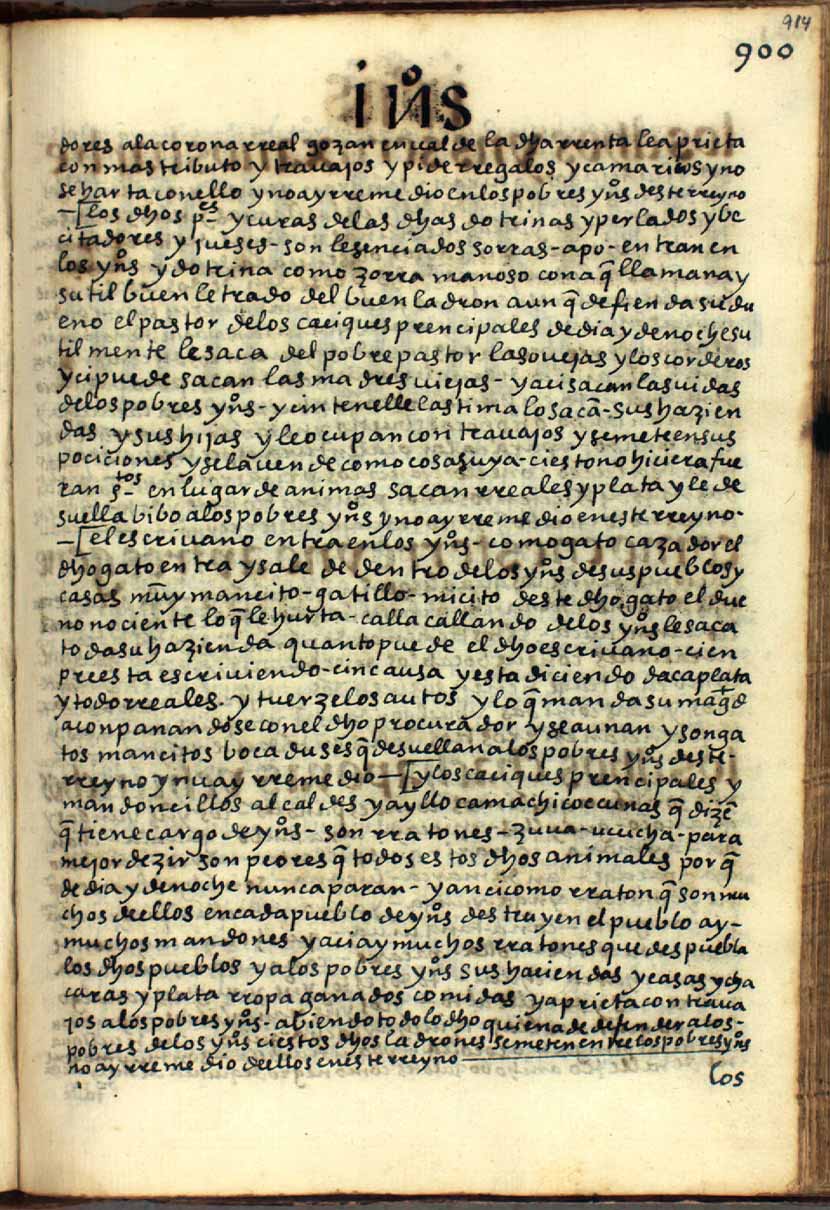 914
900
iůs
dores a la corona rreal gozan en ual de la dha rrenta le aprieta
con mas tributo y trauajos y pide rregalos y camaricos y no
se harta con ello y no ay rremedio en los pobres yůs deste rreyno
—[los dhos pes y curas de las dhas dotrinas y perlados y be
citadores y jueses - son lesenciados sorras - apo - entran en
los yůs y dotrina como zorra manoso con aq̃ llaman ay
sutil buen letrado del buen ladron aunq̃ defienda su du
eno el pastor de los caciques prencipales de dia y de noche su
tilmente le saca del pobre pastor las ouejas y los corderos
y ci puede sacan las madres viejas - y aci sacan las uidas
de los pobres yůs - y cin tenelle lastima lo sacã - sus hazien
das y sus hijas y le ocupan con trauajos y se mete en sus
pociciones y se la uende como cosa suya - ci esto no hiciera fue
ran stos en lugar de animas sacan rreales y plata y le de
suella bibo a los pobres yůs y no ay rremedio en este rreyno -
—[el escriuano entra en los yůs - como gato cazador el
dho gato entra y sale de dentro de los yůs de sus pueblos y
casas mũy mancito - gatillo - micito deste dho gato el due
no no ciente lo q̃ le hurta - calla callando de los yůs le saca
toda su hazienda quanto puede el dho escriuano - cien
pre esta escriuiendo - cin causa y esta diciendo daca plata
y todo rreales. y tuerze los autos y lo q̃ manda su mag̃d
aconpanandose con el dho procurador y se aunan y son ga
tos mancitos boca duses q̃ desuellan a los pobres yůs deste -
rreyno y nuay rremedio —[y los caciques prencipales y
mandoncillos alcaldes y ayllo camachicoccunas q̃ dizẽ
q̃ tiene cargo de yůs - son rratones - zuua - ucucha - para
mejor dezir son peores q̃ todos estos dhos animales porq̃
de dia y de noche nunca paran - y anci como rraton q̃ son mu
chos deellos en cada pueblo de yůs destruyen el pueblo ay -
muchos mandones y aci ay muchos rratones que despuebla
los dhos pueblos y a los pobres yůs sus haciendas y casas y cha
caras y plata rropa ganados comidas y aprieta con traua
jos a los pobres yůs - abiendo todo lo dho quien a de defender a los -
pobres de los yůs ci estos dhos ladrones se meten entre los pobres yůs
no ay rremedio deellos en este rreyno
los